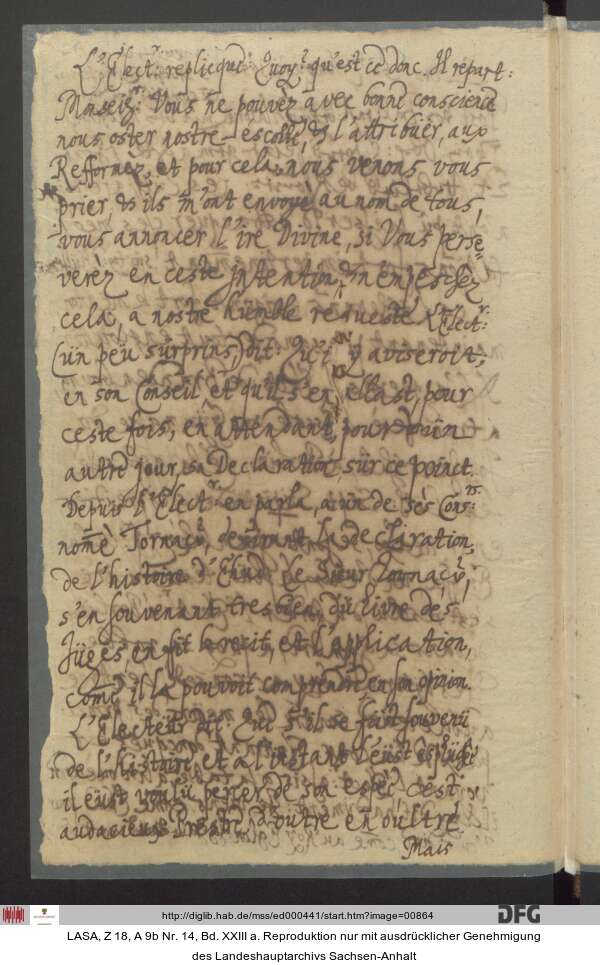 L'Elect.r replicqua: Quoy? qu'est ce donc. Il repart:
Monseig.r Vous ne pouvez avec bonne conscience
nous oster nostre escolle, & l'attribuer, aux
Refformèz, et pour cela, nous venons vous
prier, & ils m'ont envoyè au nom de tous,
vous annoncer l'ire Divine, si Vous perse=
verèz en ceste intention, &
cela, a nostre humble requeste. L'Elect.r:
(ün peü sürprins,) dit: Qu'il y aviseroit,
en son Conseil, et qu'il s'en allast, pour
ceste fois, en attendant, pour
autre jour, sa Declaration sür ce poinct.
Depuis L'Elect.r en parla, a ün de ses Cons.rs:
nommè Tornaçü, demandant, la declaration,
de l'histoire d'Ehud. Le Sieur Tornaçü,
s'en souvenant tresbien, dü livre des
Jüges, en fit le recit, et l'application,
comme il la pouvoit comprendre en son opinion.
L'Electeür dit: Qui s'il se füst souvenü
de l'histoire, et a l'instant
il eüst voulü percer de son espèe cest
audacieux Prestre, d'oütre en oültre.
Mais
http://diglib.hab.de/mss/ed000441/start.htm?image=00864
DFG
LASA, Z 18, A 9b Nr. 14, Bd. XXIII a. Reproduktion nur mit ausdrücklicher Genehmigung
des Landeshauptarchivs Sachsen-Anhalt